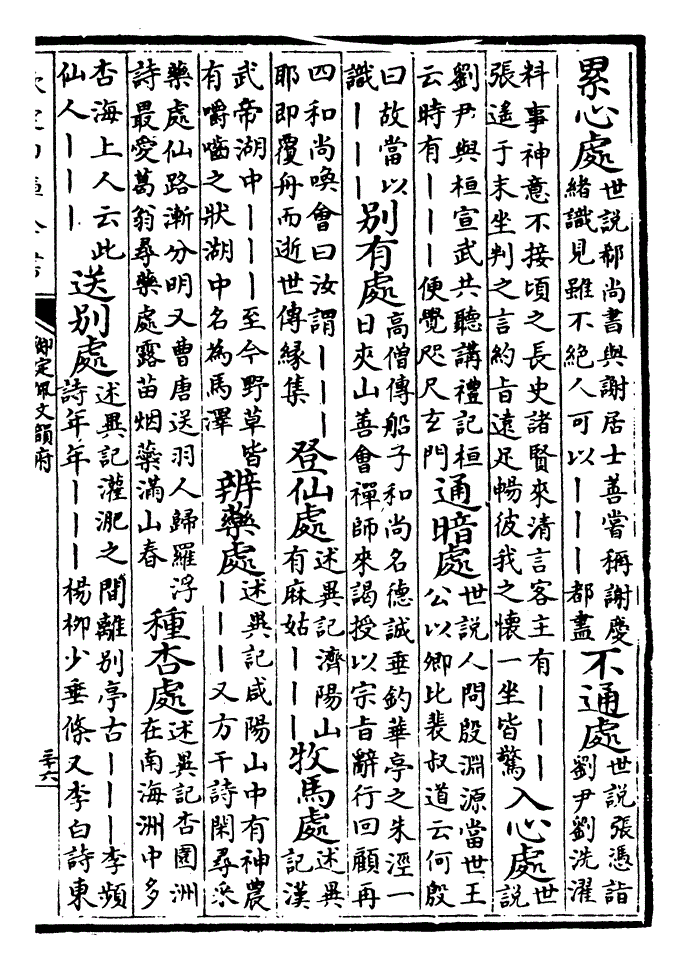 累心處世說郗尚書與謝居士善嘗稱謝慶緒識見雖不絶人可以丨丨丨都盡不通處世說張憑詣劉尹劉洗濯
料事神意不接頃之長史諸賢來清言客主有丨丨丨張遙于末坐判之言約旨遠足暢彼我之懷一坐皆驚入心處世說
劉尹與桓宣武共聽講禮記桓云時有丨丨丨便覺咫尺玄門通暗處世說人問殷淵源當世王公以卿比裴叔道云何殷
曰故當以識丨丨丨別有處高僧傳船子和尚名德誠垂釣華亭之朱涇一日夾山善會禪師來謁授以宗旨辭行回顧再
四和尚喚會曰汝謂丨丨丨耶即覆舟而逝世傳縁集登仙處述異記濟陽山有麻姑丨丨丨牧馬處述異記漢
武帝湖中丨丨丨至今野草皆有嚼嚙之狀湖中名為馬澤辨藥處述異記咸陽山中有神農丨丨丨又方干詩閑尋采
藥處仙路漸分明又曹唐送羽人歸羅浮詩最愛葛翁尋藥處露苗烟藥滿山春種杏處述異記杏園洲在南海洲中多
杏海上人云此仙人丨丨丨送别處述異記濯淝之間離別亭古丨丨丨李頻詩年年丨丨丨楊栁少垂條又李白詩東
欽定四庫全書
御定佩文韻府
三十六